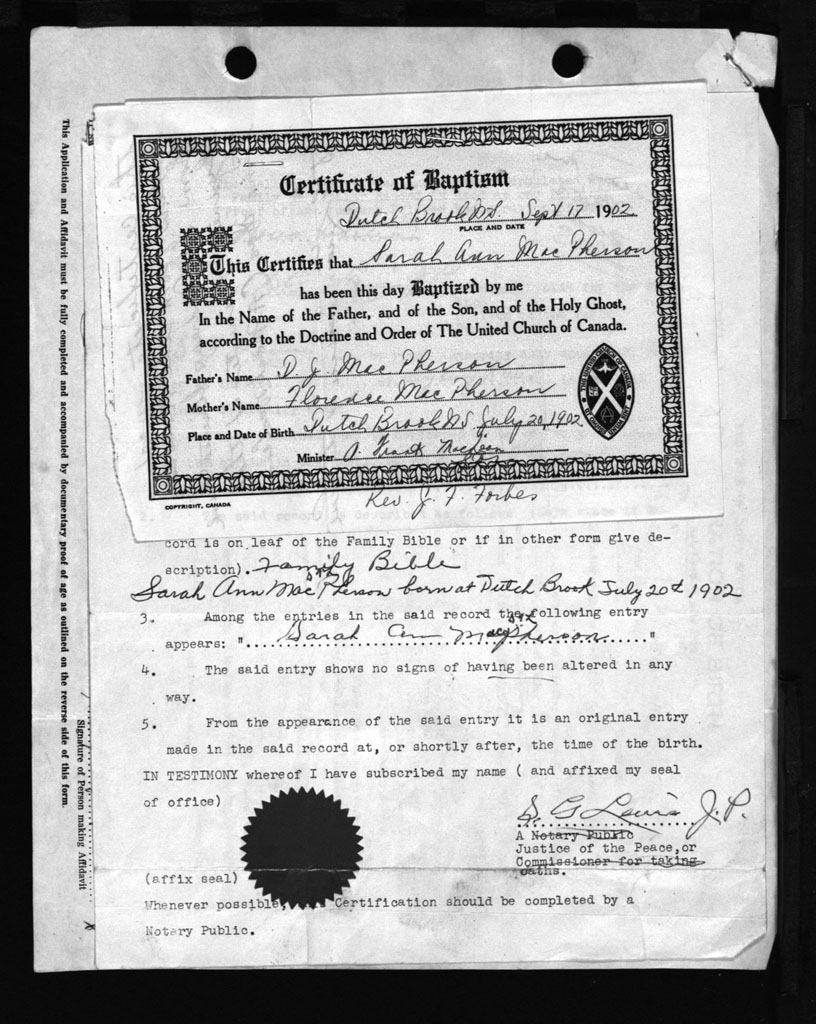 Certificate of Baptism
Dutch Brook N.S. Sept 17 1902
PLACE AND DATE
This Certifies that Sarah Ann Mac Pherson
has been this day Baptized by me
In the Name of the Father, and of the Son, and of the Holy Ghost,
according to the Doctrine and Order of The United Church of Canada.
Father's Name D. J. Mac Pherson
Mother's Name Florence Mac Pherson
Place and Date of Birth Dutch Brook N.S July 20, 1902
Minister A. Frank MacLean
COPYRIGHT, CANADA
Rev. J. F. Forbes
cord is on leaf of the Family Bible or if in other form give de-
scription). Family Bible
Sarah Ann Mac Pherson born at Dutch Brook July 20t 1902
3. Among the entries in the said record the following entry
appears: "Sarah Ann MacPherson"
4. The said entry shows no signs of having been altered in any
way.
5. From the appearance of the said entry it is an original entry
made in the said record at, or shortly after, the time of the birth.
IN TESTIMONY whereof I have subscribed my name ( and affixed my seal
of office)
S. G Lewis J. P.
A Notary Public
Justice of the Peace, or
Commissioner for taking
oaths.
(affix seal)
Whenever possible, Certification should be completed by a
Notary Public.
This Application and Affidavit must be fully completed and accompanied by documentary proof of age as outlined on the reverse side of this form.
Signature of Person making Affidavit